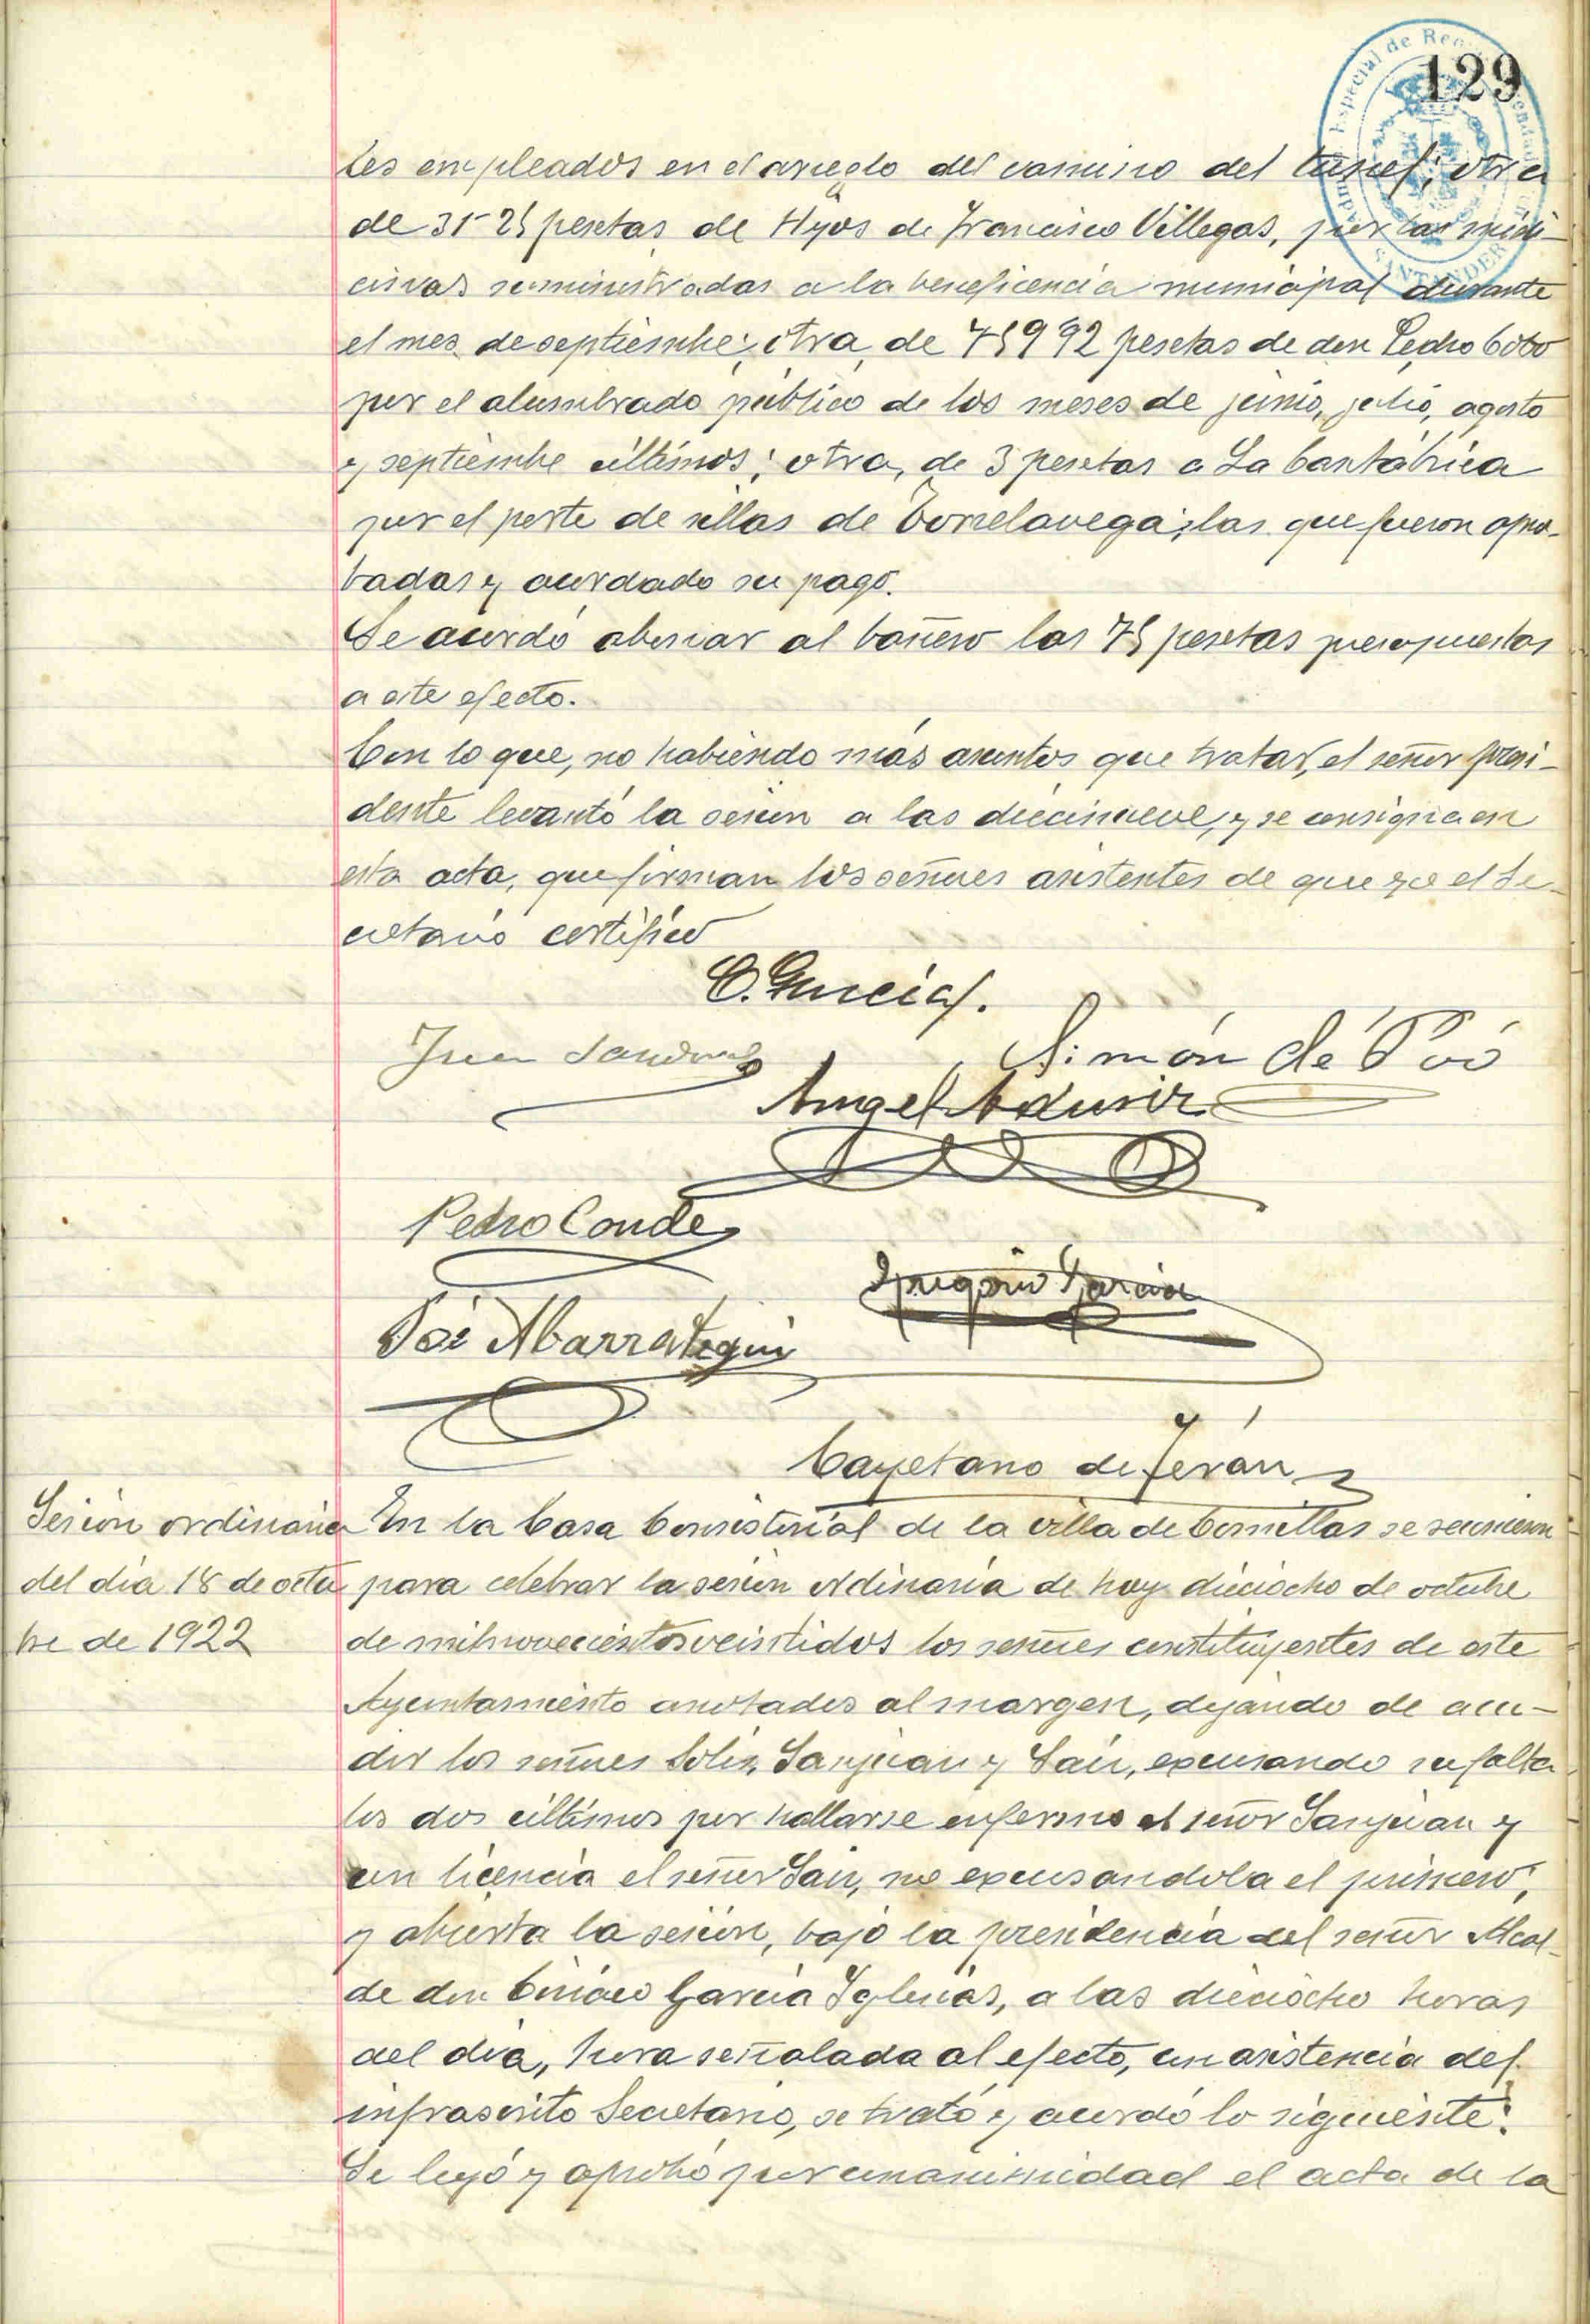 129
tes empleados en el arreglo del camino del tunel; otra
de 31'25 pesetas de Hijos de Francisco Villegas, por las medi-
cinas suministradas a la beneficencia municipal durante
el mes de septiembre; otra, de 759'92 pesetas de don Pedro Cobo
por el alumbrado público de los meses de junio, julio, agosto
y septiembre últimos; otra, de 3 pesetas a La Cantábrica
por el porte de sillas de Torrelavega; las que fueron apro-
badas y acordado su pago.
Se acordó abonar al bañero las 75 pesetas presupuestas
a este efecto.
Con lo que, no habiendo más asuntos que tratar, el señor presi-
dente levantó la sesión a las diecinueve, y se consigna en
esta acta, que firman los señores asistentes de que yo el Se-
cretario certifico
C. García.
Juan Sandoval
Simón de Poó
Angel
Pedro Conde
Gregorio García
José Abarrategui
Cayetano de Terán
Sesión ordinaria
del día 18 de octu
bre de 1922
En la Casa Consistorial de la villa de Comillas se reunieron
para celebrar la sesión ordinaria de hoy dieciocho de octubre
de mil novecientos veintidos los señores constituyentes de este
Ayuntamiento anotados al margen, dejando de acu-
dir los señores Solís, Sanjuan y Saiz, excusando su falta
los dos últimos por hallarse enfermo el señor Sanjuan y
con licencia el señor Saiz, no excusandola el primero;
y abierta la sesión, bajo la presidencia del señor Alcal-
de don Ciriaco García Iglesias, a las dieciocho horas
del día, hora señalada al efecto, con asistencia del
infrascrito Secretario, se trató y acordó lo siguiente:
Se leyó y aprobó por unanimidad el acta de la